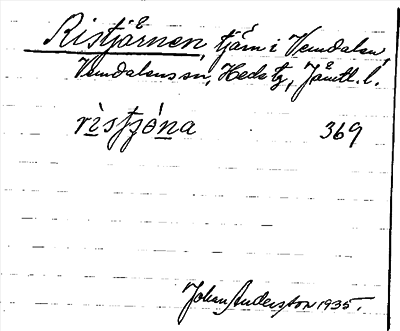 Ristjärnen, tjärn i Vemdalen,
Vemdalens sn, Heds tg, Jämtl. l.
ri̲stjó̲na 369
Johan Andersson 1935.